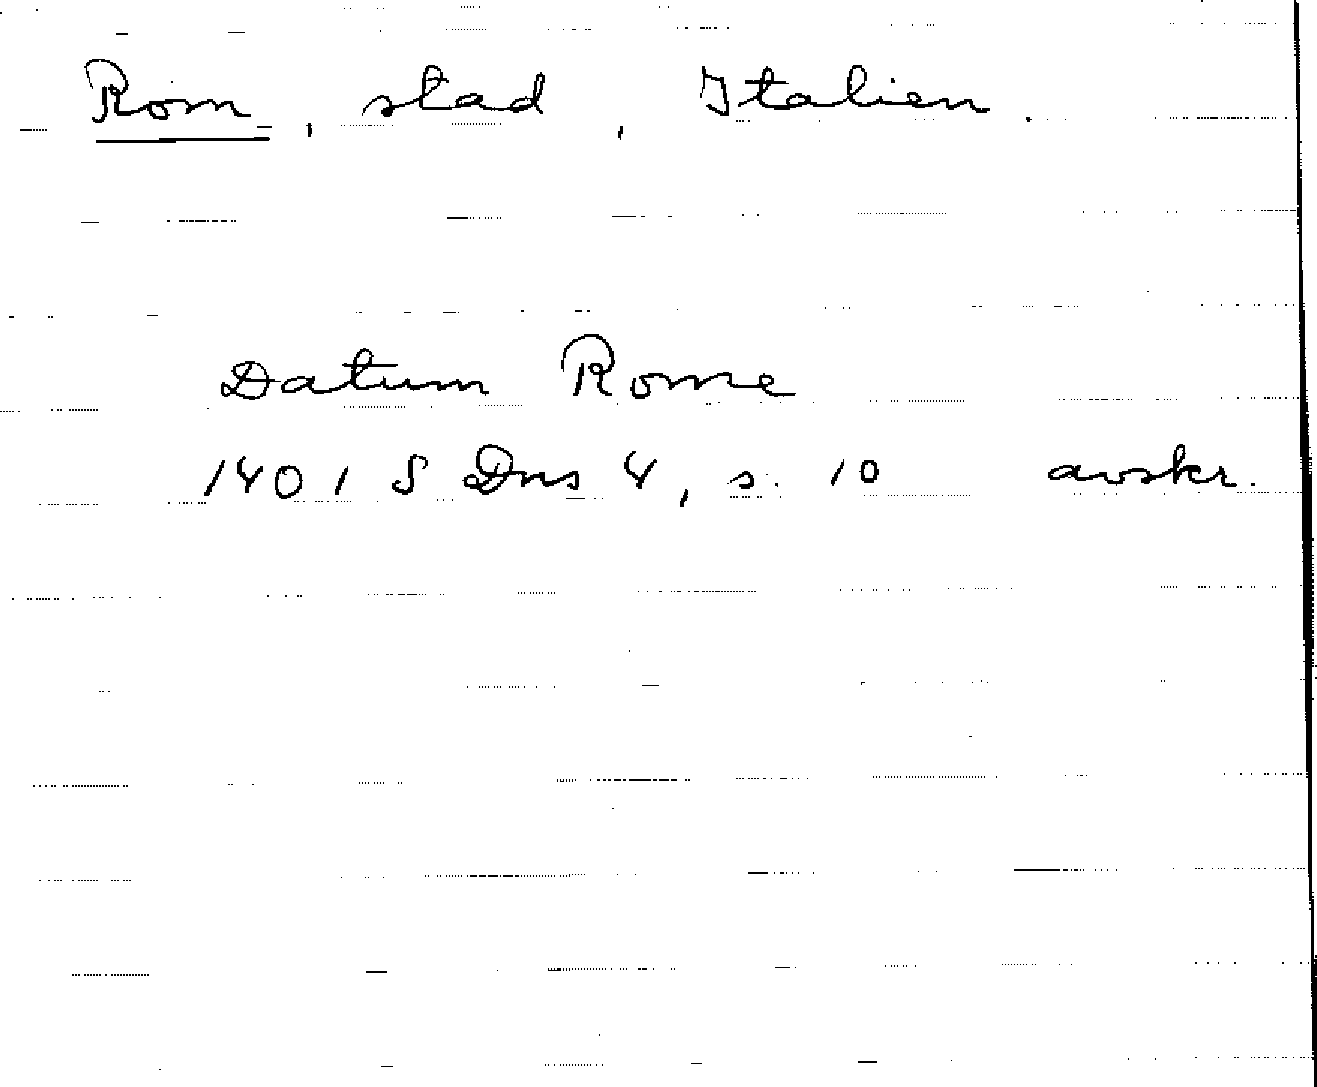 Rom, stad, Italien.
Datum Rome
1401 S Dns 4, s. 10 avskr.